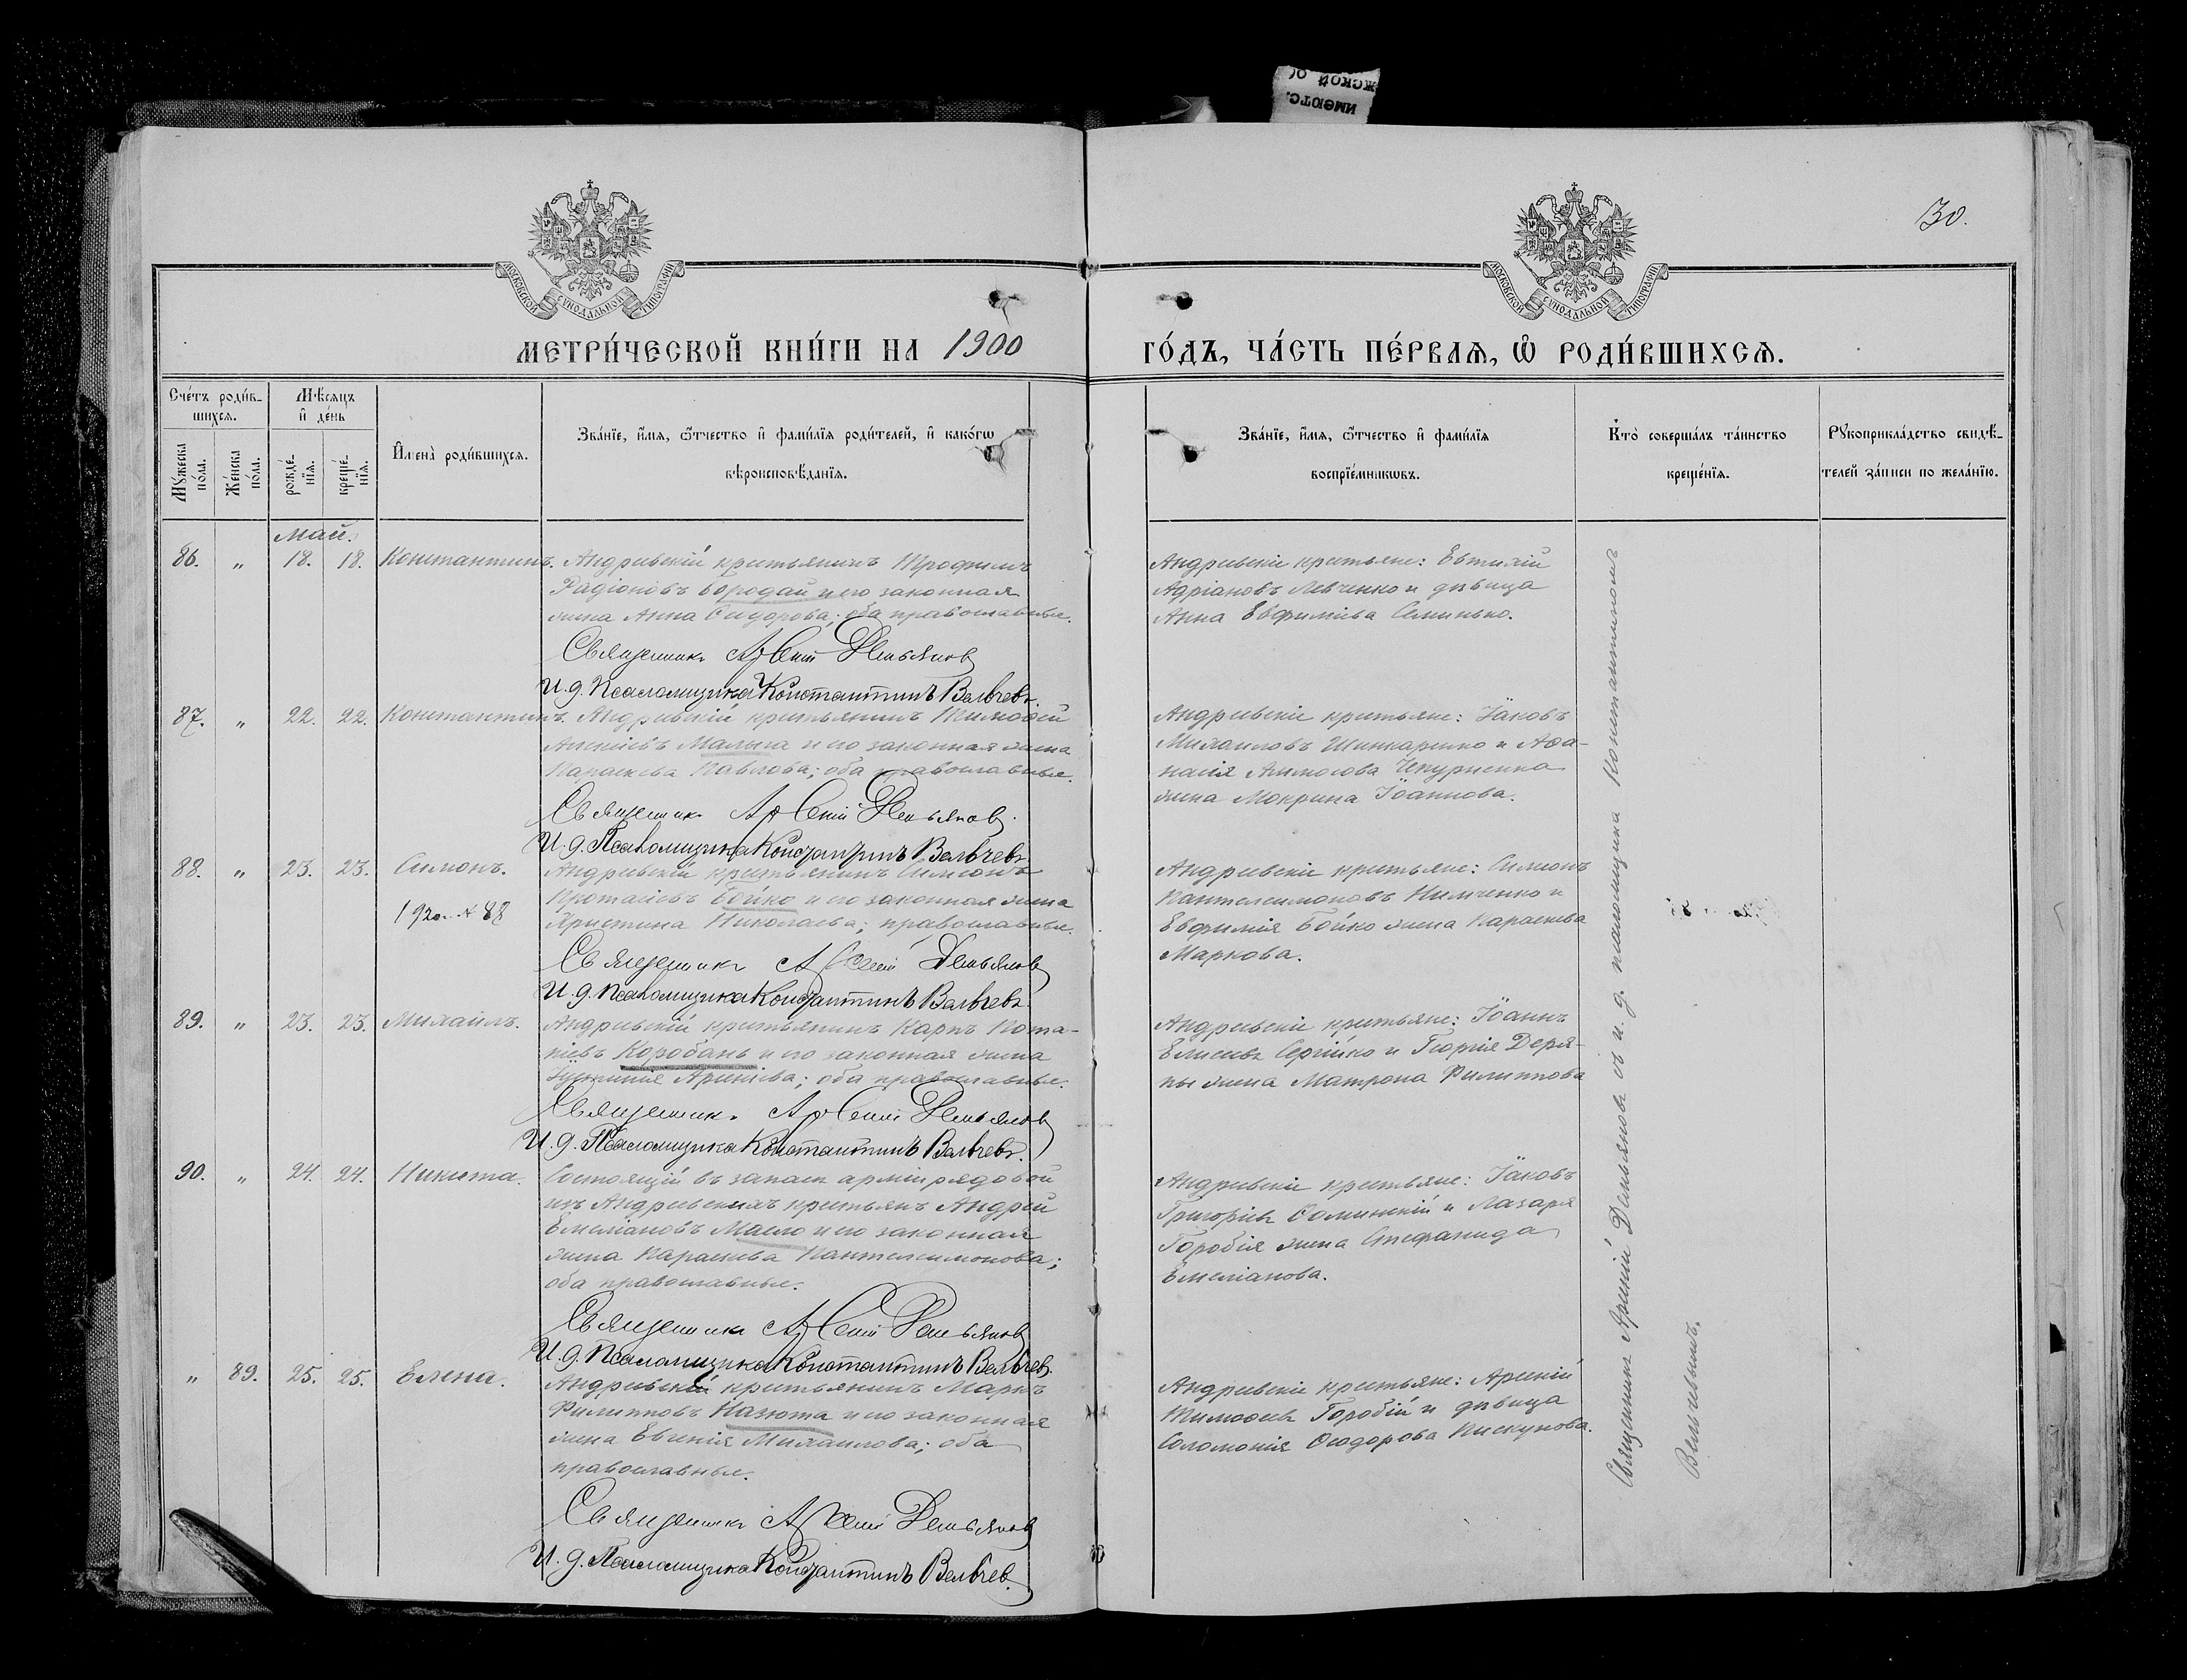 имеютс.
жской о(
30.
МОСКОВСКОЙ СѴНОДАЛЬНОЙ ТИПОГРАФІИ
МОСКОВСКОЙ СѴНОДАЛЬНОЙ ТИПОГРАФІИ
МЕТРИ́ЧЕСКОЙ КНИ́ГИ НА 1900
ГО́ДЪ, ЧА́СТЬ ПЕ́РВАЯ, Ѡ РОДИ́ВШИХСЯ.
Сче́тъ роди́в-
шихся.
Мꙋ́жеска
по́ла.
Же́нска
по́ла.
Мѣ́сяцъ
и҆ де́нь
рожде́-
нїя.
креще́-
нїя.
И҆мена̀ роди́вшихся.
Зва́нїе, и҆́мя, ѻ҆́тчество и҆ фами́лїя роди́телей, и҆ како́гѡ
вѣроисповѣ́данїя.
Зва́нїе, и҆́мя, ѻ҆́тчество и҆ фами́лїя
воспрїе́мникѡвъ.
Кто̀ соверша́лъ та́инство
креще́нїя.
Рꙋкоприкла́дство свидѣ́-
телей за́писи по жела́нїю.
Май.
86. " 18. 18. Константинъ. Андреевскій крестьянинъ Трофимъ
Радіоновъ Бородай и его законная
жена Анна Сидорова; оба православные.
Священникъ Арсеній Демьянов
И. д. Псаломщика Константинъ Вельчевъ.
Андреевскіе крестьяне: Евтихій
Адріановъ Левченко и дѣвица
Анна Евфиміева Семинько.
87. " 22. 22. Константинъ. Андреевскій крестьянинъ Тимоѳей
Алексіевъ Малыга и его законная жена
Параскева Павлова; оба православные.
Священникъ Арсеній Демьянов.
И. д. Псаломщика Константинъ Вельчевъ.
Андреевскіе крестьяне: Іаковъ
Михаиловъ Шинкаренко и Аѳа-
насія Акимосова Чекурисенка
жена Мокрина Іоаннова.
88. " 23. 23. Симонъ. Андреевскій крестьянинъ Симеонъ
1920 . № 88
Протасіевъ Бойко и его законная жена
Христина Николаева; православные.
Священникъ Арсеній Демьянов
И. д. Псаломщика Константинъ Вельчевъ.
Андреевскіе крестьяне: Симеонъ
Пантелеимоновъ Нимченко и
Евфимія Бойко жена Параскева
Маркова.
89. " 23. 23. Михаилъ. Андреевскій крестьянинъ Карпъ Пота-
піевъ Коробань и его законная жена
Арсеніева; оба православные.
Священникъ Арсеній Демьянов
И. д. Псаломщика Константинъ Вельчевъ.
Андреевскіе крестьяне: Іоаннъ
Елисеевъ Сергійко и Георгія Деря-
пы жена Матрона Филиппова
90. " 24. 24. Никита. Состоящій въ запасѣ арміи рядовой
изъ Андреевскихъ крестьянъ Андрей
Емеліановъ Масло и его законная
жена Параскева Пантелеимонова;
оба православные.
Священникъ Арсеній Демьянов
И. д. Псаломщика Константинъ Вельчевъ.
Андреевскіе крестьяне: Іаковъ
Григоріевъ Ѳоминскій и Лазаря
Горобія жена Стефанида
Емеліанова.
" 89. 25. 25. Елена. Андреевскій крестьянинъ Маркъ
Филипповъ Назюта и его законная
жена Евгенія Михаилова; оба
православные.
Священникъ Арсеній Демьянов
И. д. Псаломщика Константинъ Вельчев.
Андреевскіе крестьяне: Арсеній
Тимоѳеевъ Горобій и дѣвица
Соломонія Ѳеодорова Пискунова.
Священникъ Арсеній Демьяновъ съ и. д. псаломщика Константиномъ
Вельчевымъ.